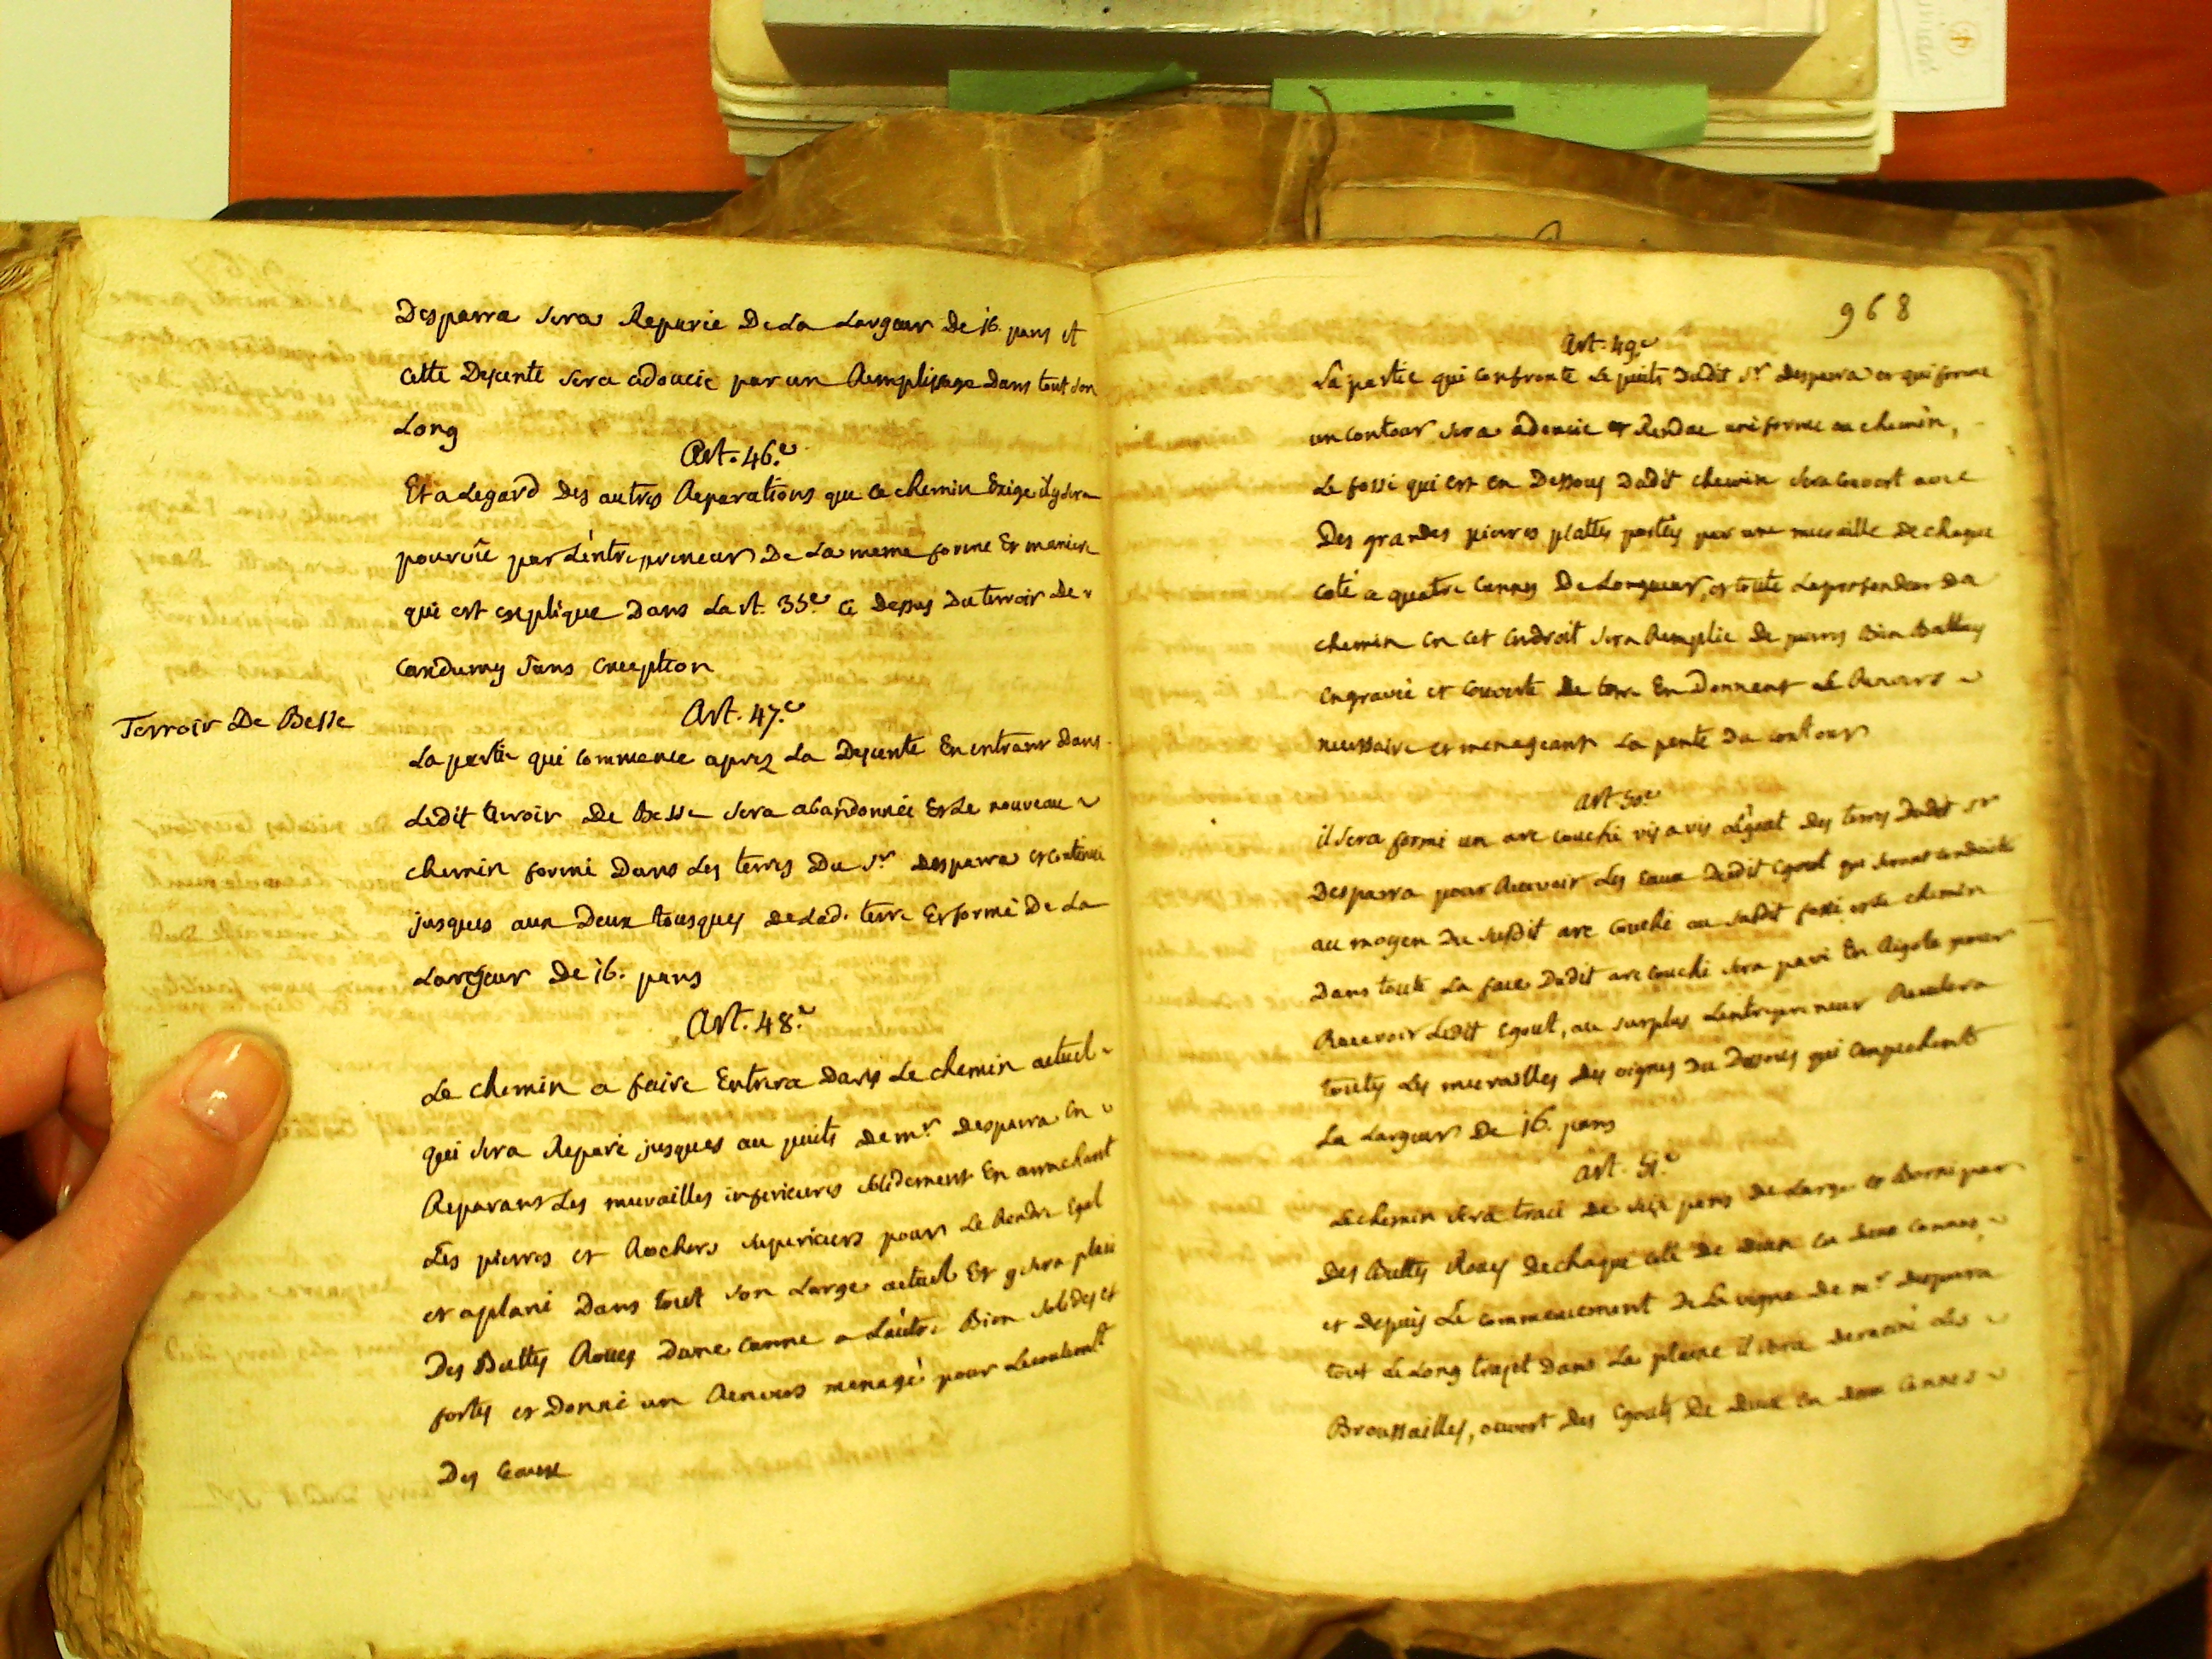 Desparra sera Reparée De La Largeur De 16. pans et
Cette Desente sera adoucie par un Remplissage Dans tout son
Long
Art. 46.e
Et a Legard Des autres Reparations que Ce chemin Exige il y sera
pourvûe par L'entrepreneur De La meme forme Et maniere
qui est explique Dans Lart. 35.e Ci Dessus Du terroir De
Candumy sans exception
Terroir De Besse
Art. 47.e
La partie qui commence aprez La Desente En entrant Dans
Ledit terroir De Besse sera abandonnée Et Le nouveau
chemin formé Dans Les terres Du Sr. Desparra et continué
jusques aux Deux tousques De Lad. terre Et formé De La
Largeur De 16. pans
Art. 48.e
Le chemin a faire Entrera Dans Le chemin actuel
qui sera Reparé jusques au puits De mr. Desparra En
Reparant Les murailles inferieures solidement En arrachant
Les pierres et Rochers superieurs pour Le Rendre Egal
et aplani Dans tout son Large actuel Et y sera
Des Buttes Roues Dune Canne a L'autre Bien solides et
fortes et Donné un Renvers menagé pour
Des Eaux
968
Art. 49.e
La partie qui confronte Le puits Dudit Sr. Desparra et qui forme
un contour sera adoucie et Rendue uniforme au chemin,
Le fossé qui est en Dessous Dudit chemin sera Couvert avec
Des grandes pierres plattes portées par une muraille De chaque
coté a quatre Cannes De Longueur, et toute La profondeur Du
chemin en cet endroit sera Remplie De pierres Bien Battues
engravée et Couverte De terre En Donnent Le Renvers
necessaire et menageant La pente Du contour
Art. 50.e
il sera formé un arc couché vis a vis L'égout Des terres Dudit Sr
Desparra pour Recevoir Les Eaux Dudit Egout qui seront conduites
au moyen Du susdit arc Couché au susdit fossé, et Le chemin
Dans toute La face Dudit arc Couché sera pavé En Rigole pour
Recevoir Ledit Egout, au surplus Lentrepreneur Reculera
toutes Les murailles Des vignes Du Dessus qui Empechent
La Largeur De 16. pans
art. 51.e
Le chemin sera tracé De seize pans De Large et Borné par
Des Buttes Roues De chaque coté De Deux en Deux Cannes
et Depuis Le commencement De La vigne De mr. Desparra
tout Le Long trajet Dans La plaine il sera Deraciné Les
Broussailles, ouvert Des Egouts De Deux en Deux Cannes